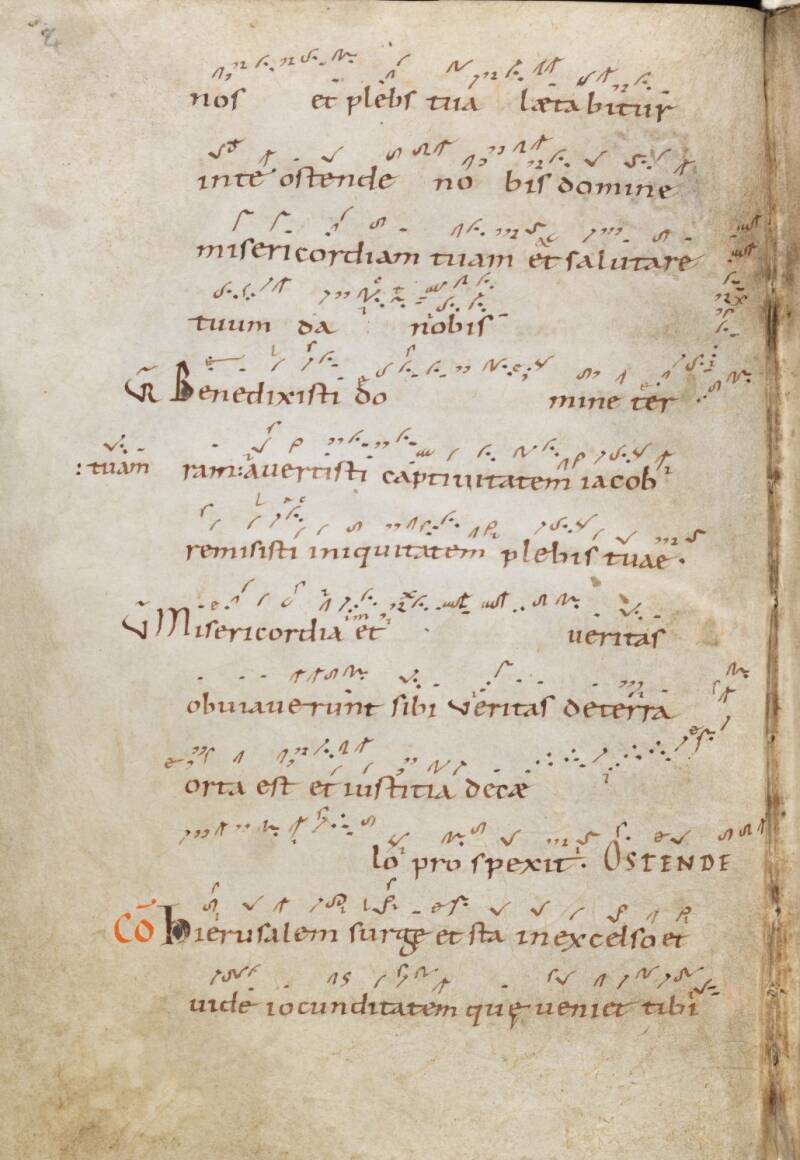 nos et plebs tua lætabitur
inte ostende no bis domine
misericordiam tuam et salutare
tuum da nobis
VR Benedixisti do mine ter
: tuam ram: avertisti captivitatem iacob
remisisti iniquitatem plebis tuae.
V Misericordia et veritas
obviaverunt sibi veritas deterra
orta est et iustitia decæ
lo prospexit. OSTENDE
CŌ hierusalem surge et sta inexcelso et
vide iocunditatem quę veniet tibi